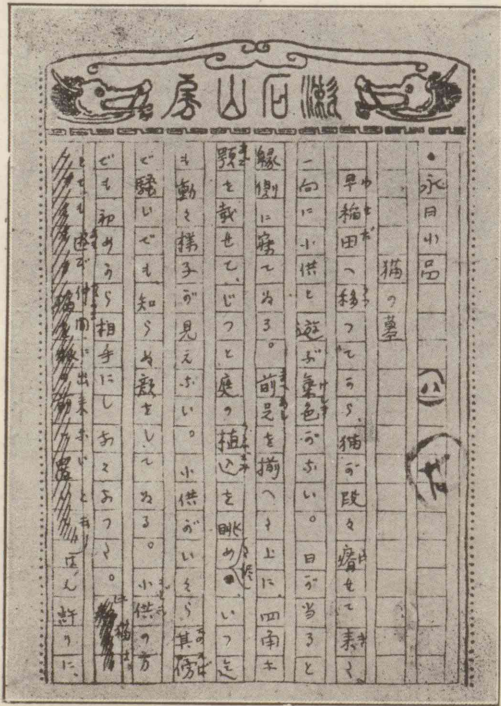 漱石山房
・永日小品 (八)
猫の墓
早稲田へ移つてから、猫が段々瘠せて来た。
一向に小供と遊ぶ氣色がない。日が当ると
縁側に寐てゐる。前足を揃へた上に、四角な
顎を載せて、じつと庭の植込を眺めた儘、いつ迄
も動く様子が見えない。小供がいくら其傍
で騒いでも知らぬ顔をしてゐる。小供の方
でも初めから相手にしなくなつた。猫は
とても遊び仲間に出来ないと云はん許りに、